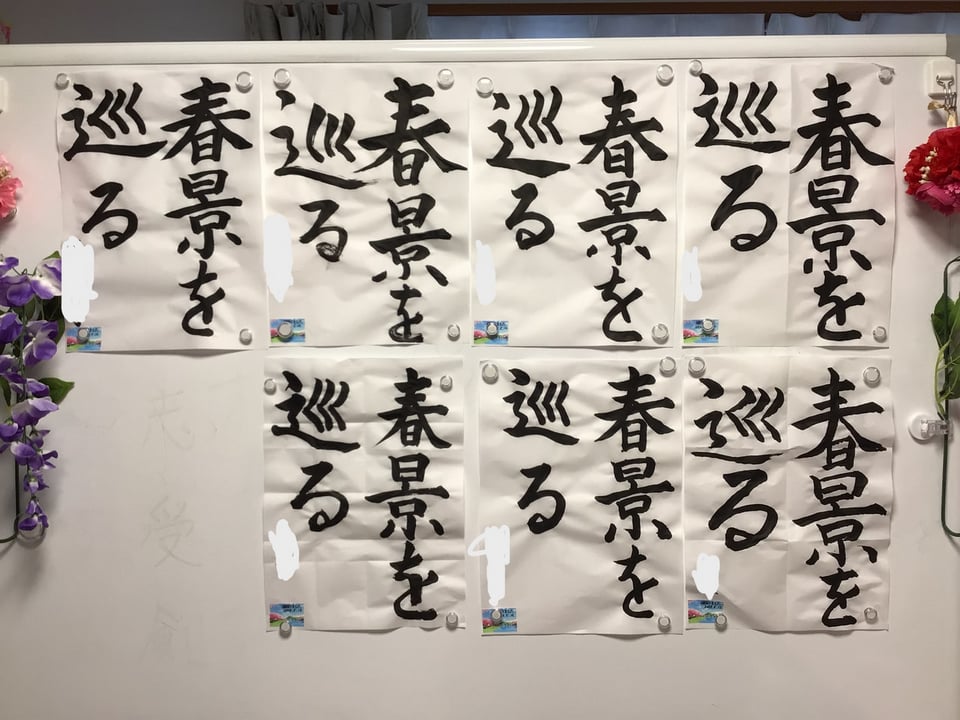 春景を
巡る
春景を
巡る
春景を
巡る
春景を
巡る
春景を
巡る
春景を
巡る
春景を
巡る